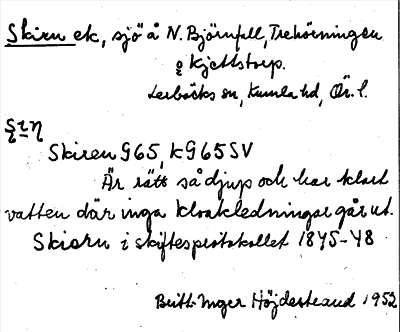 Skiren ek, sjö å N. Björnfall, Trehörningen
o Kjettstorp.
Lerbäcks sn, Kumla hd, Ör. l.
Skiren G65, KG65SV
Är rätt så djup och har klart
vatten där inga kloakledningar går ut.
Skiern i skiftesprotokollet 1845-48
Britt-Inger Höjdestrand 1952